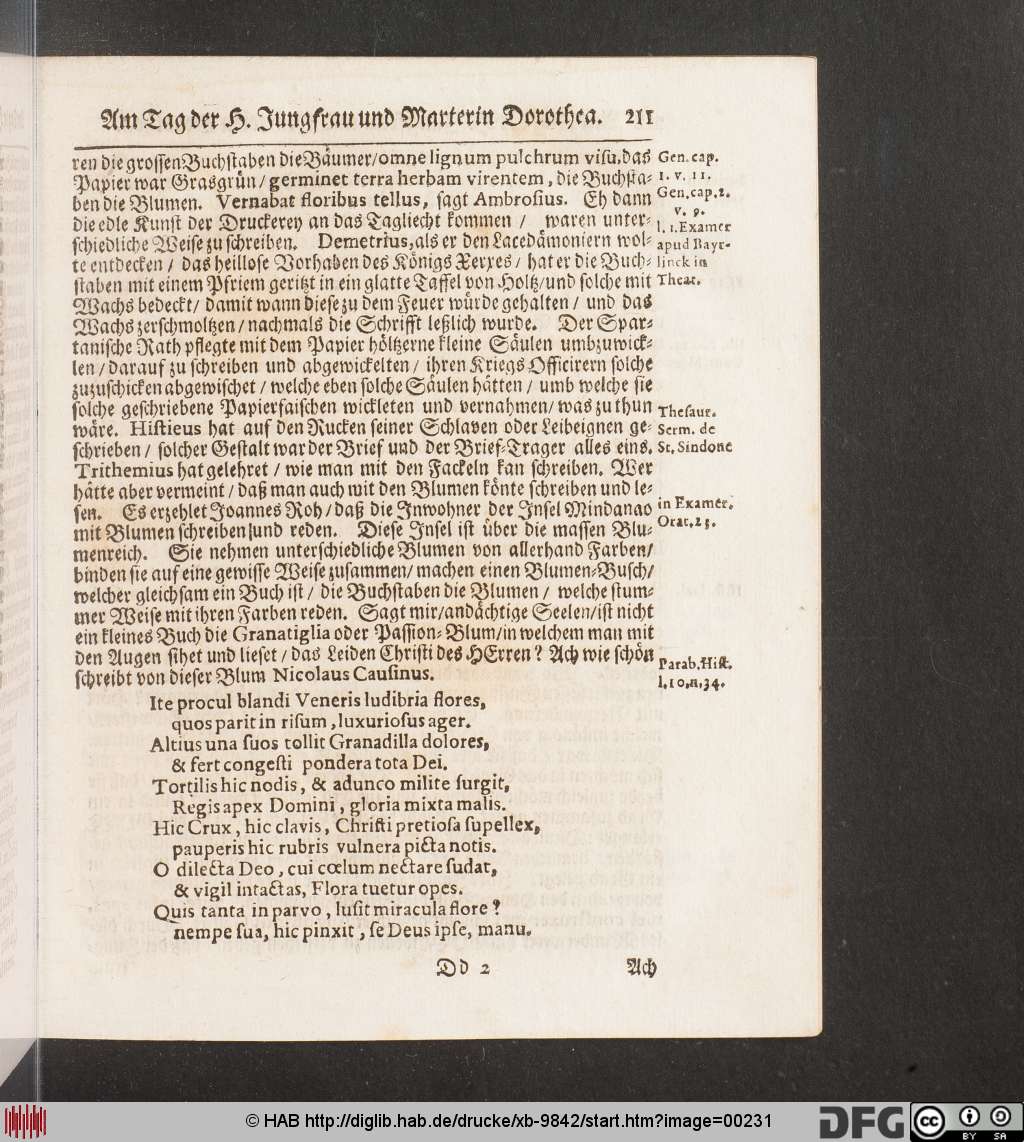 Am Tag der H. Jungfrau und Marterin Dorothea. 211
ren die grossen Buchstaben die Bäumer/ omne lignum pulchrum visu, das
Papier war Grasgrün/ germinet terra herbam virentem, die Buchsta-
ben die Blumen. Vernabat floribus tellus, sagt Ambrosius. Eh dann
die edle Kunst der Druckerey an das Tagliecht kommen / waren unter-
schiedliche Weise zu schreiben. Demetrius, als er den Lacedämoniern wol-
te entdecken / das heillose Vorhaben des Königs Xerxes / hat er die Buch-
staben mit einem Pfriem geritzt in ein glatte Taffel von Holtz/ und solche mit
Wachs bedeckt/ damit wann diese zu dem Feuer würde gehalten / und das
Wachs zerschmoltzen / nachmals die Schrifft leßlich wurde. Der Spar-
tanische Rath pflegte mit dem Papier höltzerne kleine Säulen umbzuwick-
len / darauf zu schreiben und abgewickelten / ihren Kriegs-Officirern solche
zuzuschicken abgewischet / welche eben solche Säulen hätten / umb welche sie
solche geschriebene Papierfaischen wickleten und vernahmen/ was zu thun
wäre. Histieus hat auf den Rucken seiner Schlaven oder Leibeignen ge-
schrieben / solcher Gestalt war der Brief und der Brief-Trager alles eins.
Trithemius hat gelehret / wie man mit den Fackeln kan schreiben. Wer
hätte aber vermeint / daß man auch mit den Blumen könte schreiben und le-
sen. Es erzehlet Joannes Roh / daß die Inwohner der Insel Mindanao
mit Blumen schreiben/und reden. Diese Insel ist über die massen Blu-
menreich. Sie nehmen unterschiedliche Blumen von allerhand Farben/
binden sie auf eine gewisse Weise zusammen/ machen einen Blumen-Busch/
welcher gleichsam ein Buch ist / die Buchstaben die Blumen / welche stum-
mer Weise mit ihren Farben reden. Sagt mir/ andächtige Seelen/ist nicht
ein kleines Buch die Granatiglia oder Passion-Blum/in welchem man mit
den Augen sihet und lieset / das Leiden Christi des HErren? Ach wie schön
schreibt von dieser Blum Nicolaus Causinus.
Ite procul blandi Veneris ludibria flores,
quos parit in risum, luxuriosus ager.
Altius una suos tollit Granadilla dolores,
& fert congesti pondera tota Dei.
Tortilis hic nodis, & adunco milite surgit,
Regis apex Domini, gloria mixta malis.
Hic Crux, hic clavis, Christi pretiosa supellex,
pauperis hic rubris vulnera picta notis.
O dilecta Deo, cui cœlum nectare sudat,
& vigil intactas, Flora tuetur opes.
Quis tanta in parvo, lusit miracula flore?
nempe sua, hic pinxit, se Deus ipse, manu.
Dd 2 Ach
Gen. cap.
1. v. 11.
Gen. cap. 2.
v. 9.
l. 1. Examer
apud Bayr-
linck in
Theat.
Thesaur.
Serm. de
St. Sindone
in Examer.
Orat. 23.
Parab. Hist.
l. 10. n. 34.
© HAB http://diglib.hab.de/drucke/xb-9842/start.htm?image=00231
DFG
cc BY SA